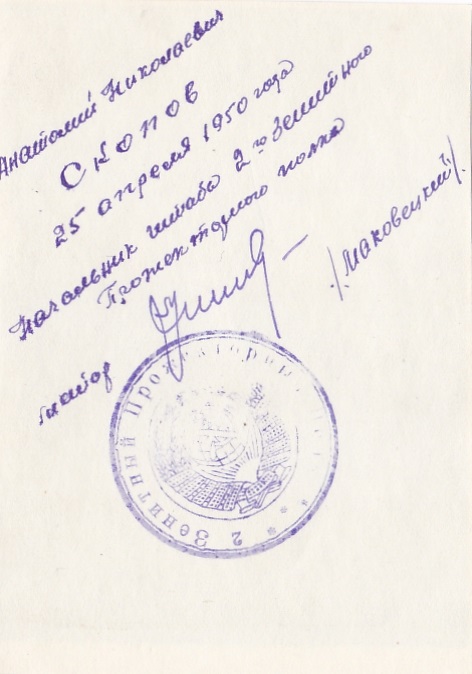 Анатолий Николаевич
Скопов
25 апреля 1950 года
Начальник штаба 2го Зенитного
Прожекторного полка
майор
/Маковецкий/.
2 Зенитный Прожекторный